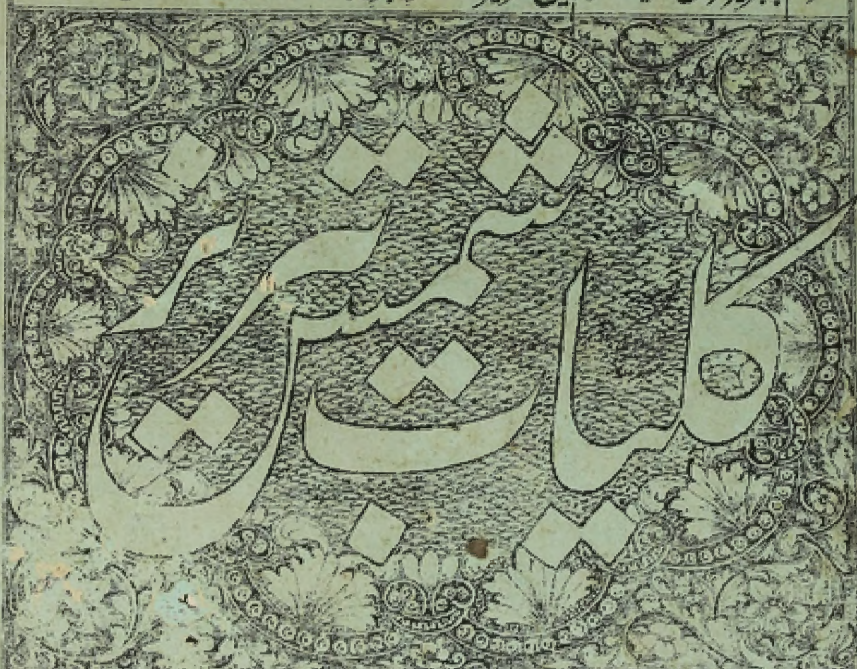 کلیات شمس تبریز